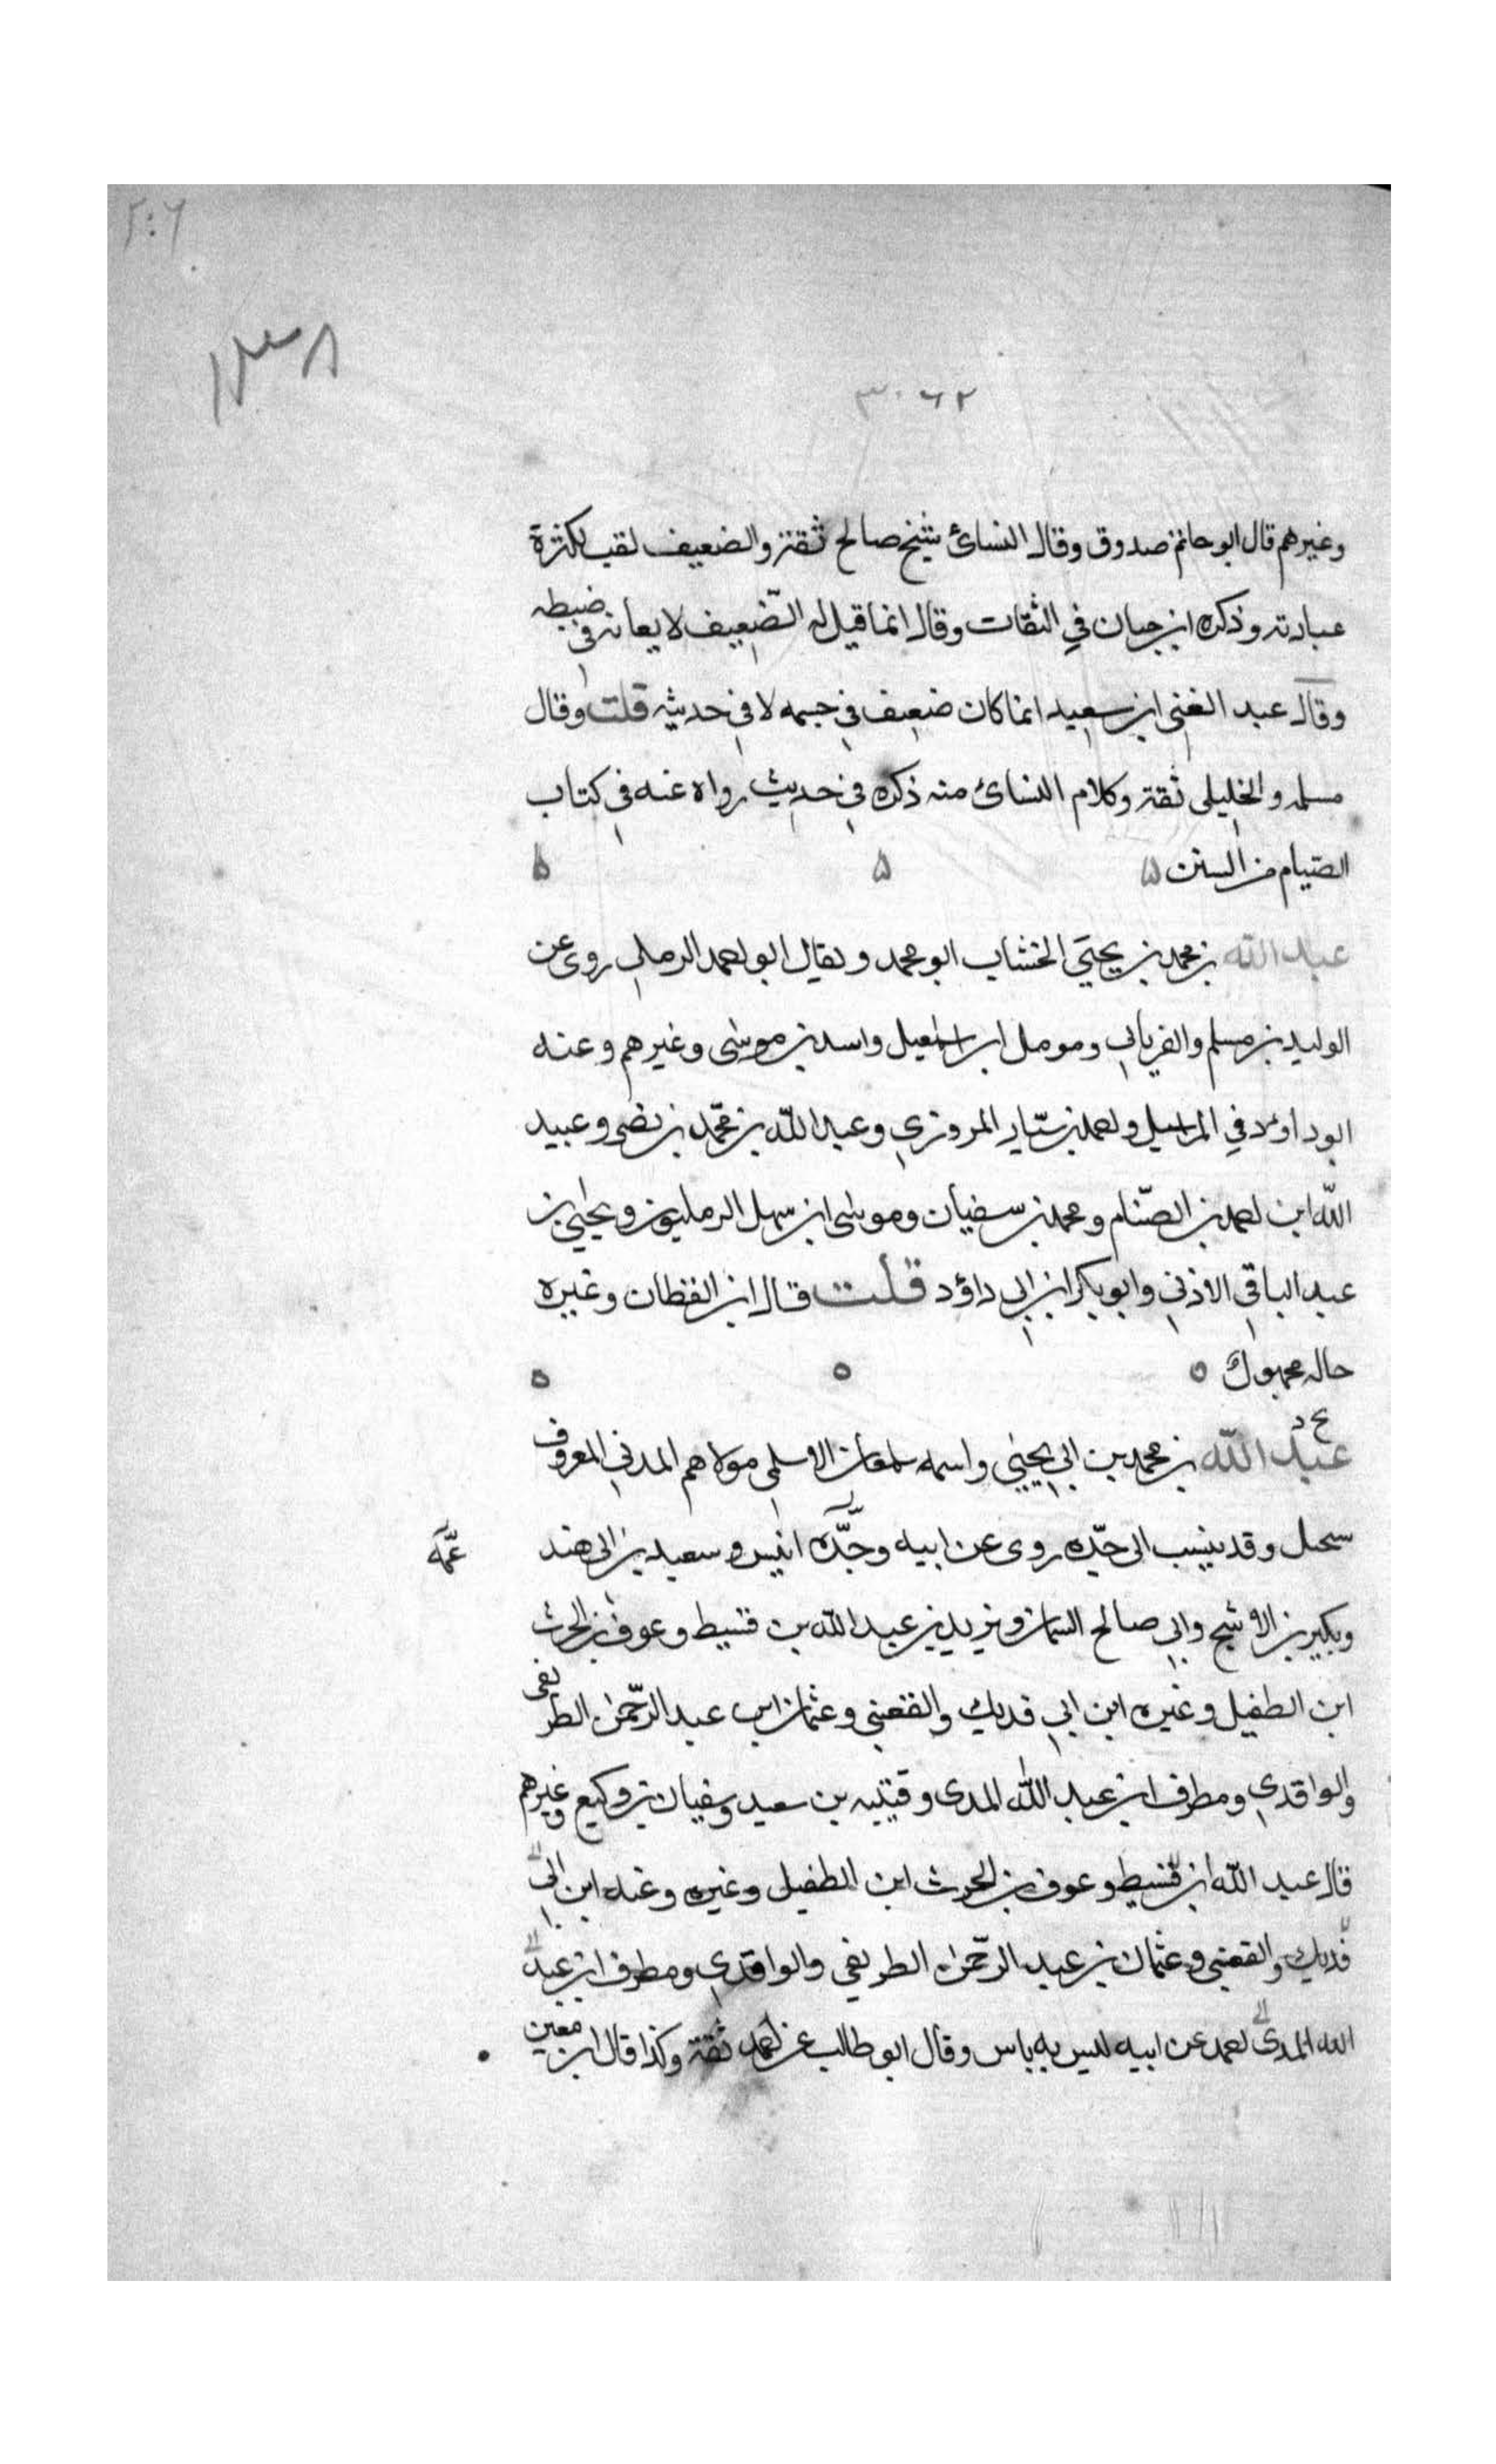 ٢٠٦
١٣٨
٣٠٦٢
وغيرهم قال ابو حاتم صدوق وقال النسائ شيخ صالح ثقة والضعيف لقب لكثرة
عبادته وذكره ابن حبان في الثقات وقال انما قيل له الضّعيف لا يعانه في ضبطه
وقال عبد الغني ابن سعيد انما كان ضعيف في جسمه لا في حديثه قلت وقال
مسلمه والخليلي ثقة وكلام النسائ منه ذكره في حديث رواه عنه في كتاب
الصيام من السنن ۵ ۵ ۵
عبد الله بن محمد بن يحيَي الخشاب ابو محمد ويقال ابو احمد الرملي روى عن
الوليد بن مسلم والفريابي ومومل ابن اسمعيل واسد بن موسى وغيرهم وعنه
ابو داوٗد في المراسيل واحمد بن سيّار المروزي وعبد اللّه بن محمّد بن نضر وعبيد
اللّه ابن احمد بن الصّنام ومحمد بن سفيان وموسى ابن سهل الرمليون ويحيي بن
عبد الباقي الاذني وابو بكر ابن ابي داوٗد قلت قال ابن القطان وغيره
حاله مجهول ٥ ٥ ٥
بخ د
عبد اللّه بن محمد بن ابي يحيي واسمه سمعان الاسلمي مولاهم المدني المعروف
سحبل وقد ينسب الى جدّه روى عن ابيه وجدّه انيس وسعيد بن ابى هند عمّه
وبكير بن الاشج وابي صالح السمان ويزيد بن عبد اللّه بن قسيط وعوف بن الحرث
ابن الطفيل وغيره ابن ابي فديك والقعنبي وعثمان ابن عبد الرّحمن الطريفى
والواقدي ومطرف ابن عبد اللّه المدى وقتيبه بن سعيد وسفيان بن وكيع وغيرهم
قال عبد اللّه ابن قسيط وعوف بن الحرث ابن الطفيل وغيره وعنه ابن ابى
فديك والقعنبي وعثمان بن عبد الرّحمن الطريفي والواقدي ومطرف ابن عبد
الله المدى احمد عن ابيه ليس به باس وقال ابو طالب عن احمد ثقة وكذا قال ابن معين